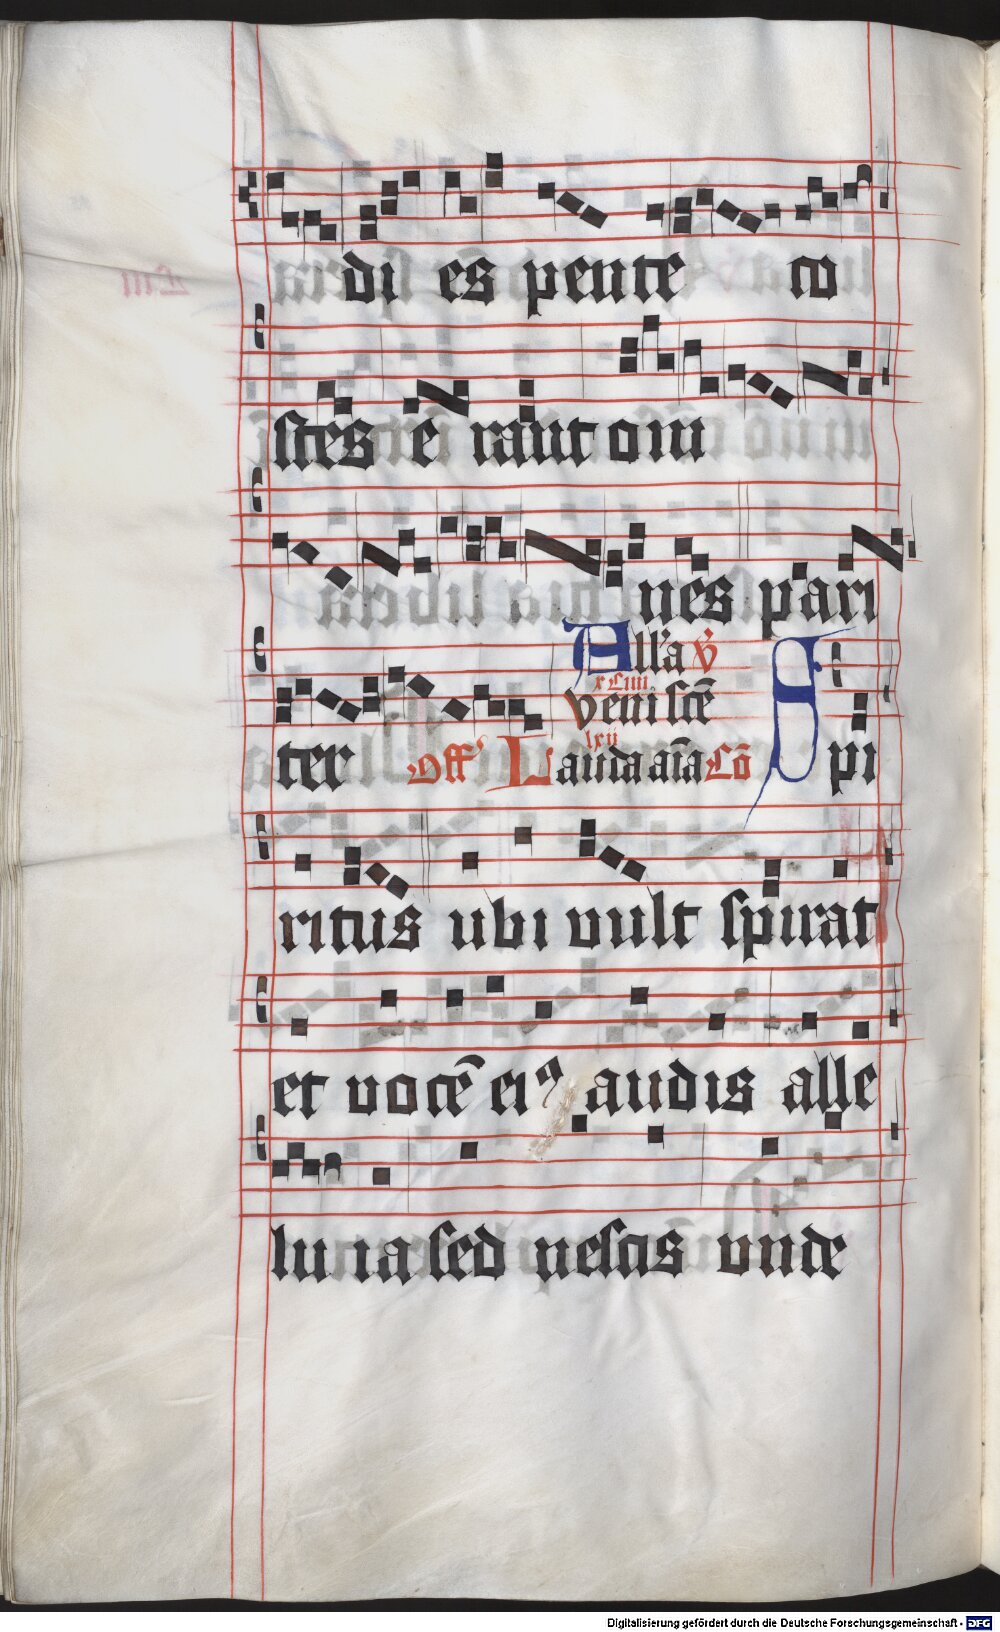 di es pente co
stes e rant om
nes pari
All'a v̇
xciiii
veni scē
lxii
ter Off' Lauda aīa Cō Spi
ritus ubi vult spirat
et vocē eiꝰ audis alle
lu ia sed nescis unde
Digitalisierung gefördert durch die Deutsche Forschungsgemeinschaft - DFG